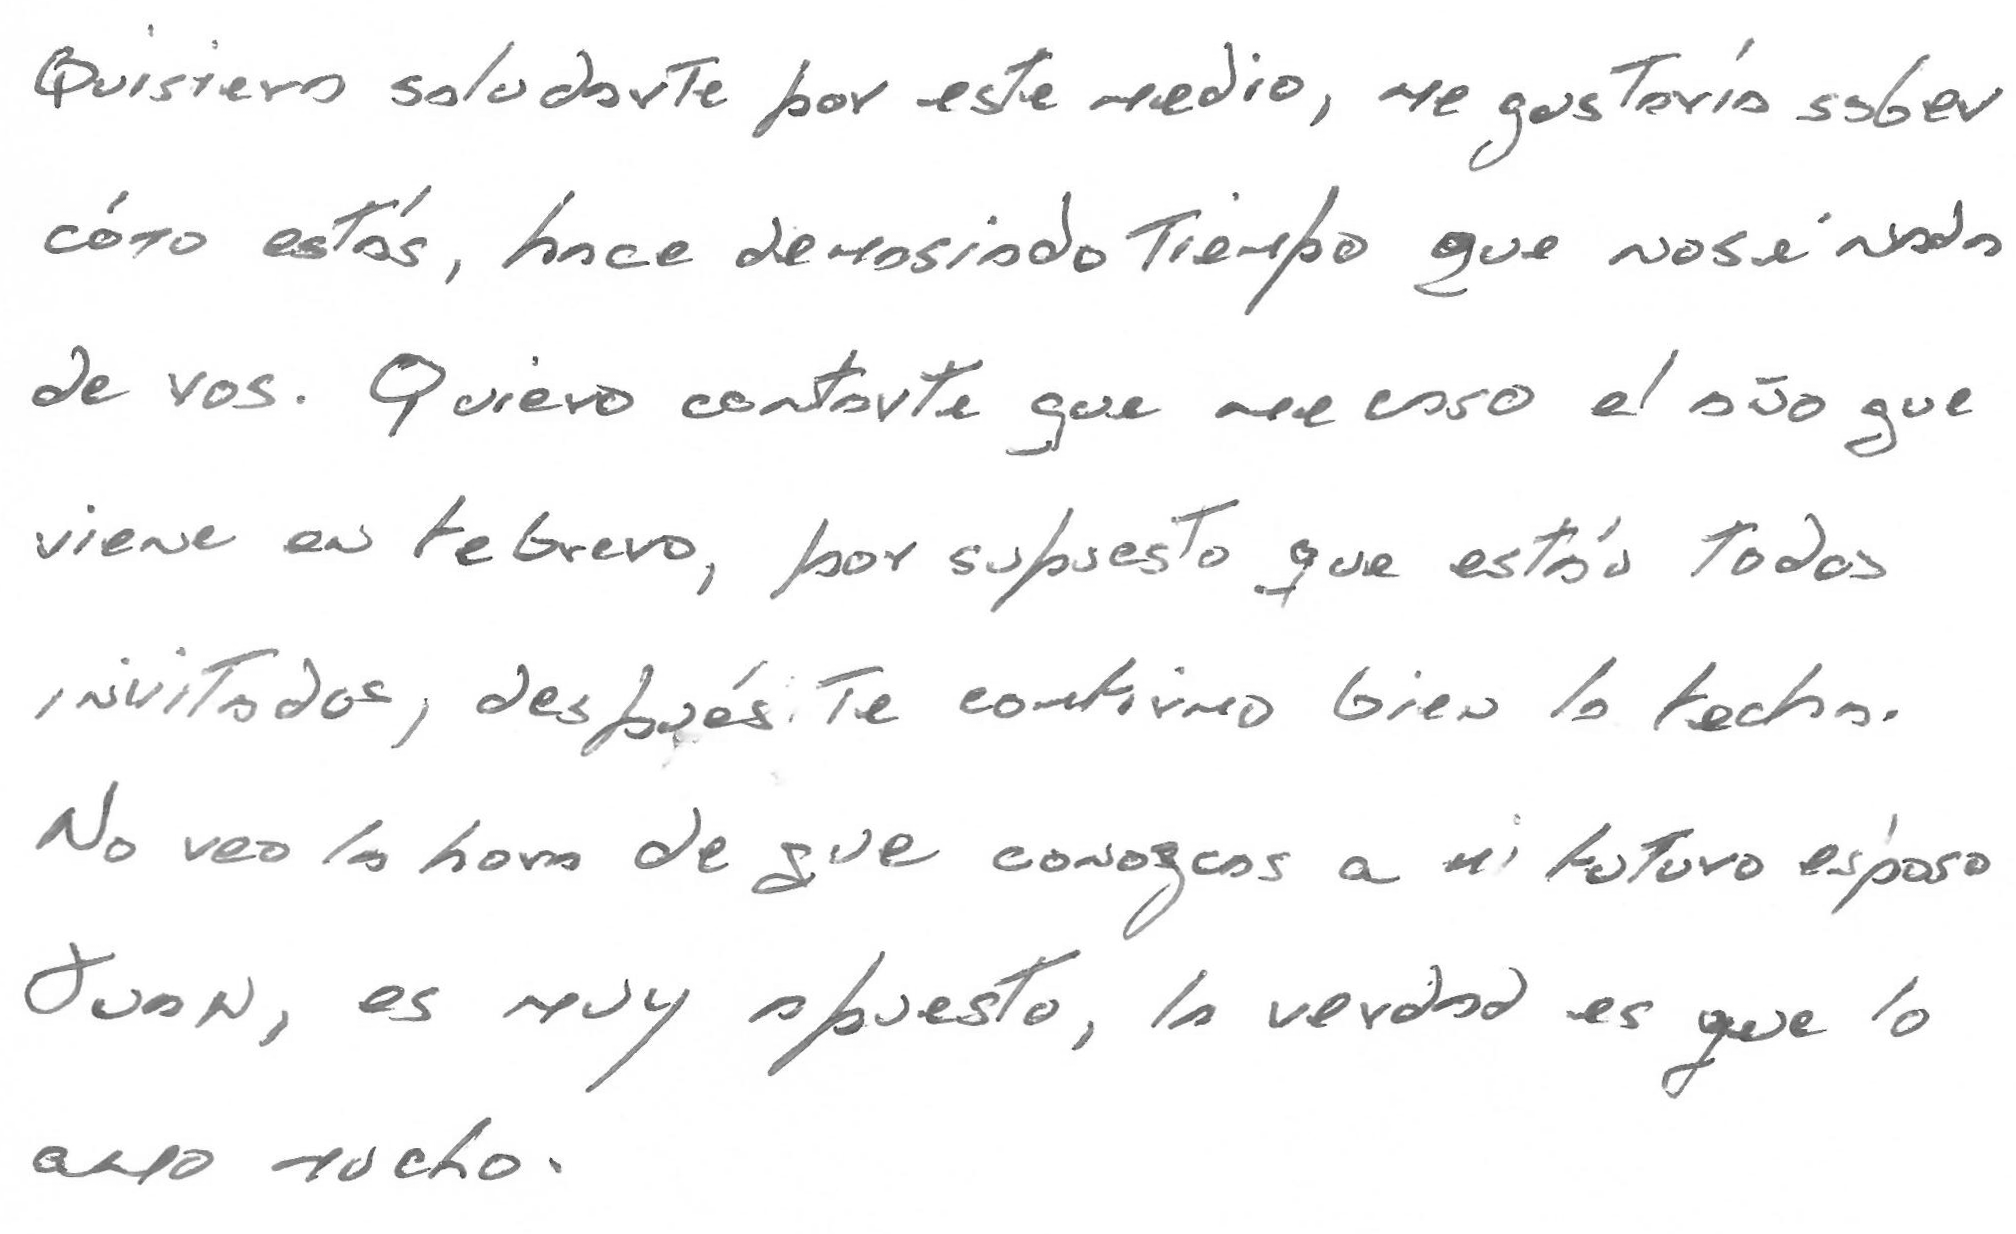 Quisiera saludarte por este medio, me gustaría saber
cómo estás, hace demasiado tiempo que no sé nada
de vos. Quiero contarte que me caso el año que
viene en febrero, por supuesto que están todos
invitados, después te confirmo bien la fecha.
No veo la hora de que conozcas a mi futuro esposo
Juan, es muy apuesto, la verdad es que lo
amo mucho.